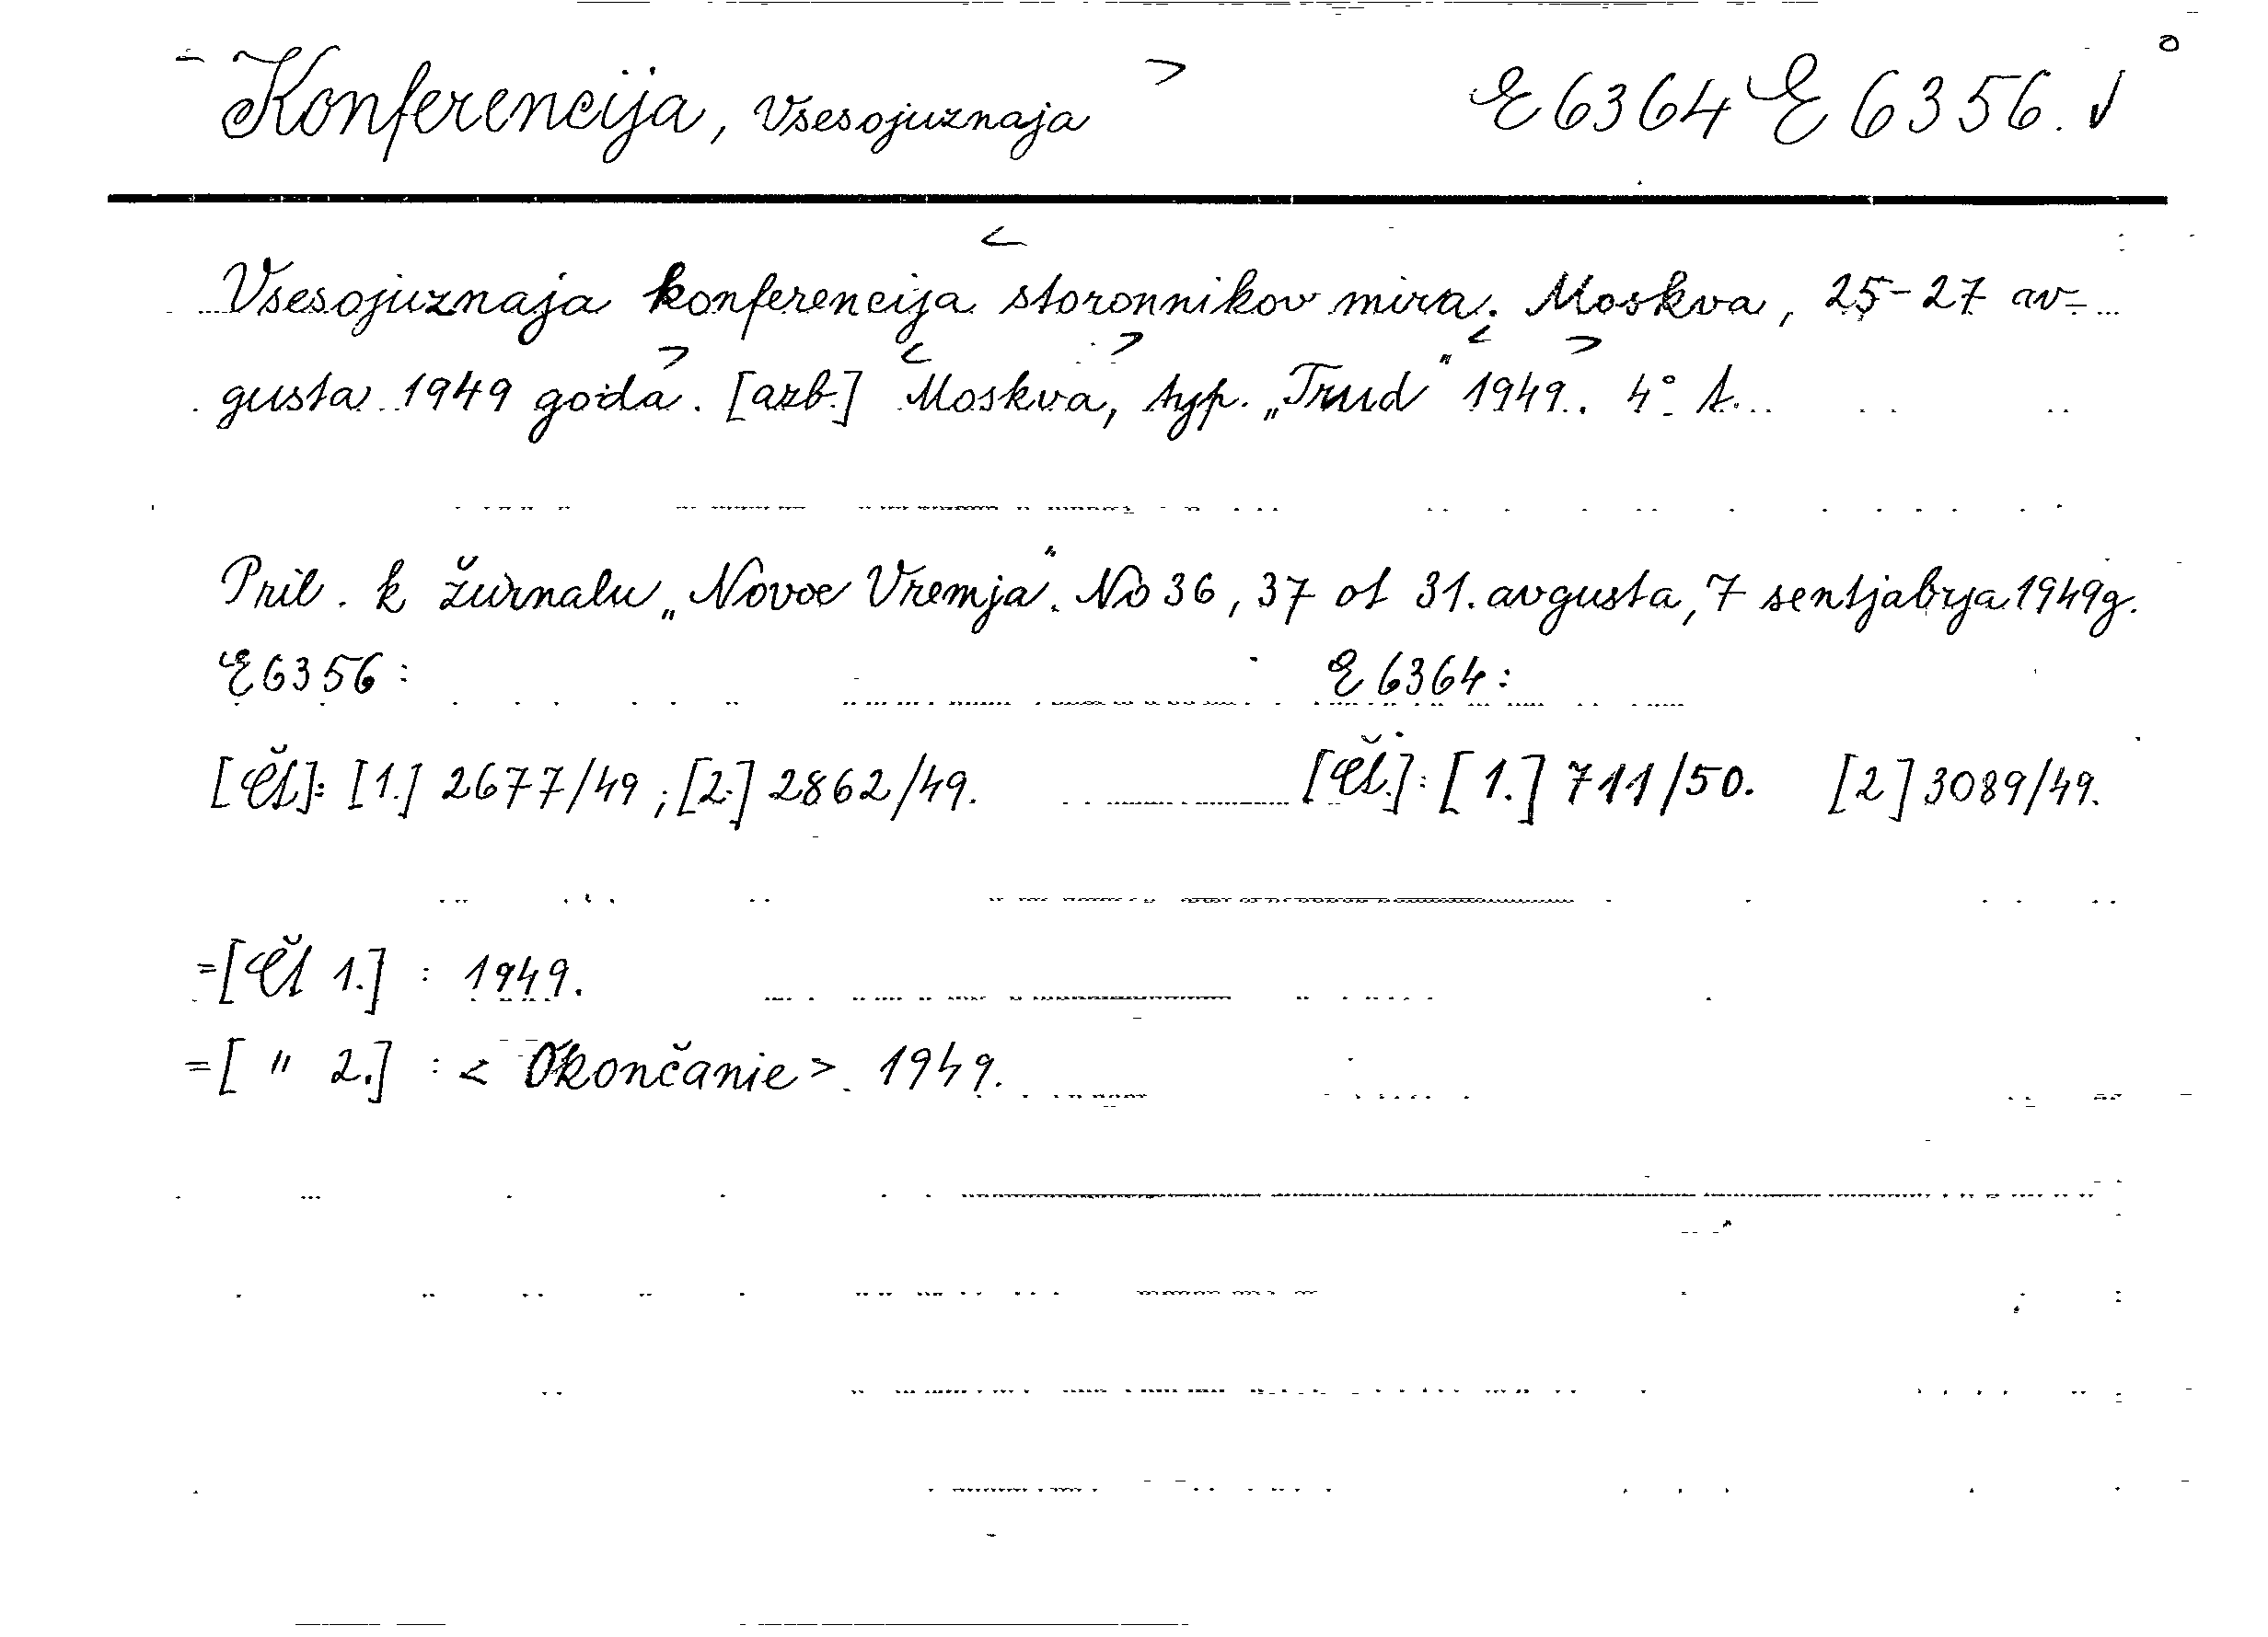 Konferencija, Vsesojuznaja > E 6364 E 6356. √
Vsesojuznaja konferencija < storonnikov mira. Moskva, 25-27 av-
gusta 1949 goda >. [azb.] < Moskva >, typ. „Trud" < 1949 >. 4° t.
Pril. k žurnalu „Novoe Vremja". No 36, 37 ot 31. avgusta, 7 sentjabrja 1949 g.
E 6356: E 6364:
[Čť]: [1.] 2677/49; [2.] 2862/49. [Čť.]: [1.] 711/50. [2] 3089/49.
=[Čť 1.] : 1949.
=[ " 2.] : < Okončanie >. 1949.